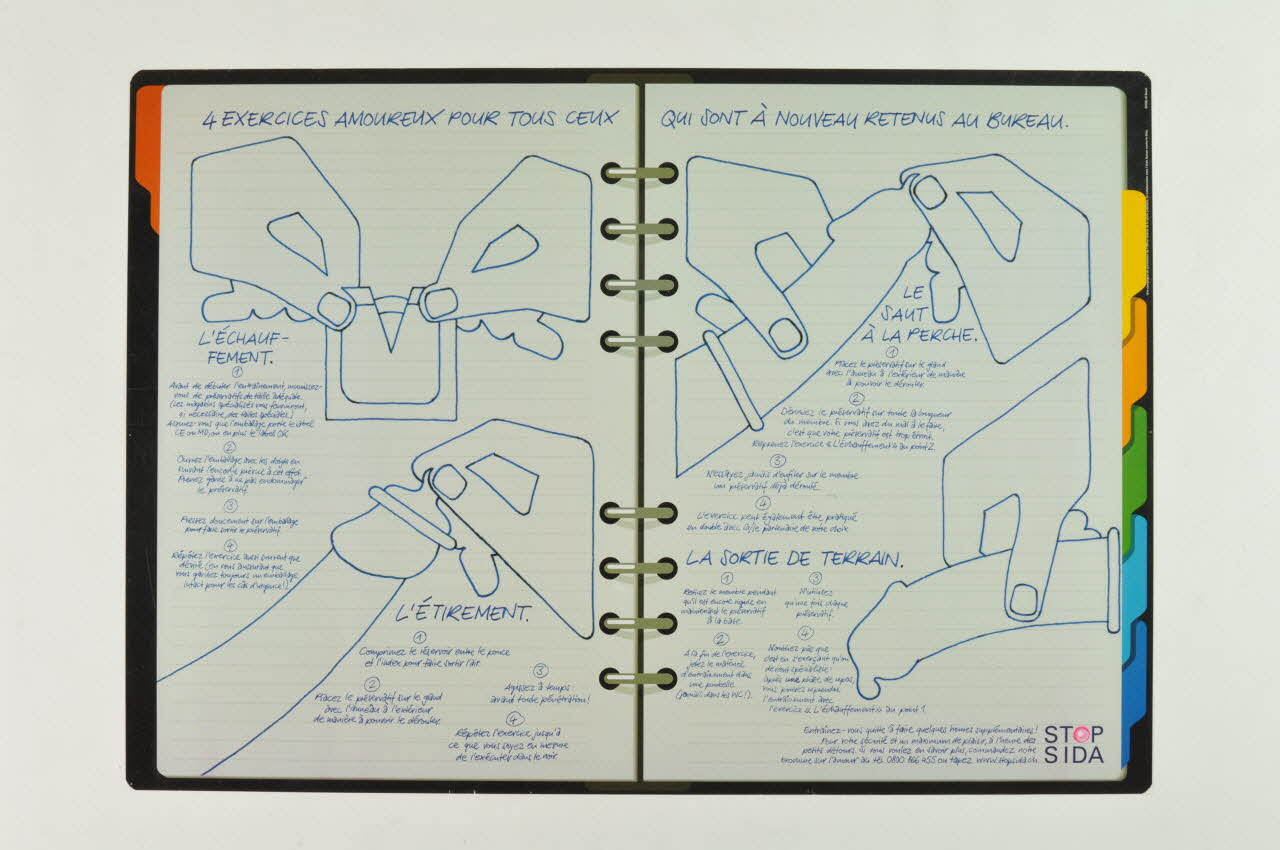 4 EXERCICES AMOUREUX POUR TOUS CEUX QUI SONT À NOUVEAU RETENUS AU BUREAU.
L'ÉCHAUF-
FEMENT.
1
Avant de débuter l'entraînement, munissez-
vous de préservatifs de taille adéquate.
(Les magasins spécialisés vous fourniront,
si nécessaire, des tailles spéciales.)
Assurez-vous que l'emballage porte le label
CE ou MD, ou en plus le label OK.
2
Ouvrez l'emballage avec les doigts en
suivant l'encoche prévue à cet effet.
Prenez garde à ne pas endommager
le préservatif.
3
Pressez doucement sur l'emballage
pour faire sortir le préservatif.
4
Répétez l'exercice aussi souvent que
désiré (en vous assurant que
vous gardez toujours un emballage
intact pour les cas d'urgence!)
L'ÉTIREMENT.
1
Comprimez le réservoir entre le pouce
et l'index pour faire sortir l'air.
2
Placez le préservatif sur le gland
avec l'anneau à l'extérieur
de manière à pouvoir le dérouler.
3
Agissez à temps:
avant toute pénétration!
4
Répétez l'exercice jusqu'à
ce que vous soyez en mesure
de l'exécuter dans le noir.
LE
SAUT
À LA PERCHE.
1
Placez le préservatif sur le gland
avec l'anneau à l'extérieur de manière
à pouvoir le dérouler.
2
Déroulez le préservatif sur toute la longueur
du membre. Si vous avez du mal à le faire,
c'est que votre préservatif est trop étroit.
Reprenez l'exercice «L'échauffement» au point 2.
3
N'essayez jamais d'enfiler sur le membre
un préservatif déjà déroulé.
4
L'exercice peut également être pratiqué
en double avec la/le partenaire de votre choix.
LA SORTIE DE TERRAIN.
1
Retirez le membre pendant
qu'il est encore rigide en
maintenant le préservatif
à la base.
2
A la fin de l'exercice,
jetez le matériel
d'entraînement dans
une poubelle
(jamais dans les WC!).
3
N'utilisez
qu'une fois chaque
préservatif.
4
N'oubliez pas que
c'est en s'exerçant qu'on
devient spécialiste:
après une phase de repos,
vous pourrez reprendre
l'entraînement avec
l'exercice «L'échauffement» au point 1.
Entraînez-vous quitte à faire quelques heures supplémentaires!
Pour votre sécurité et un maximum de plaisir, à l'heure des
petits détours. Si vous voulez en savoir plus, commandez notre
brochure sur l'amour au tél. 0800 166 455 ou tapez www.stopsida.ch
STOP
SIDA